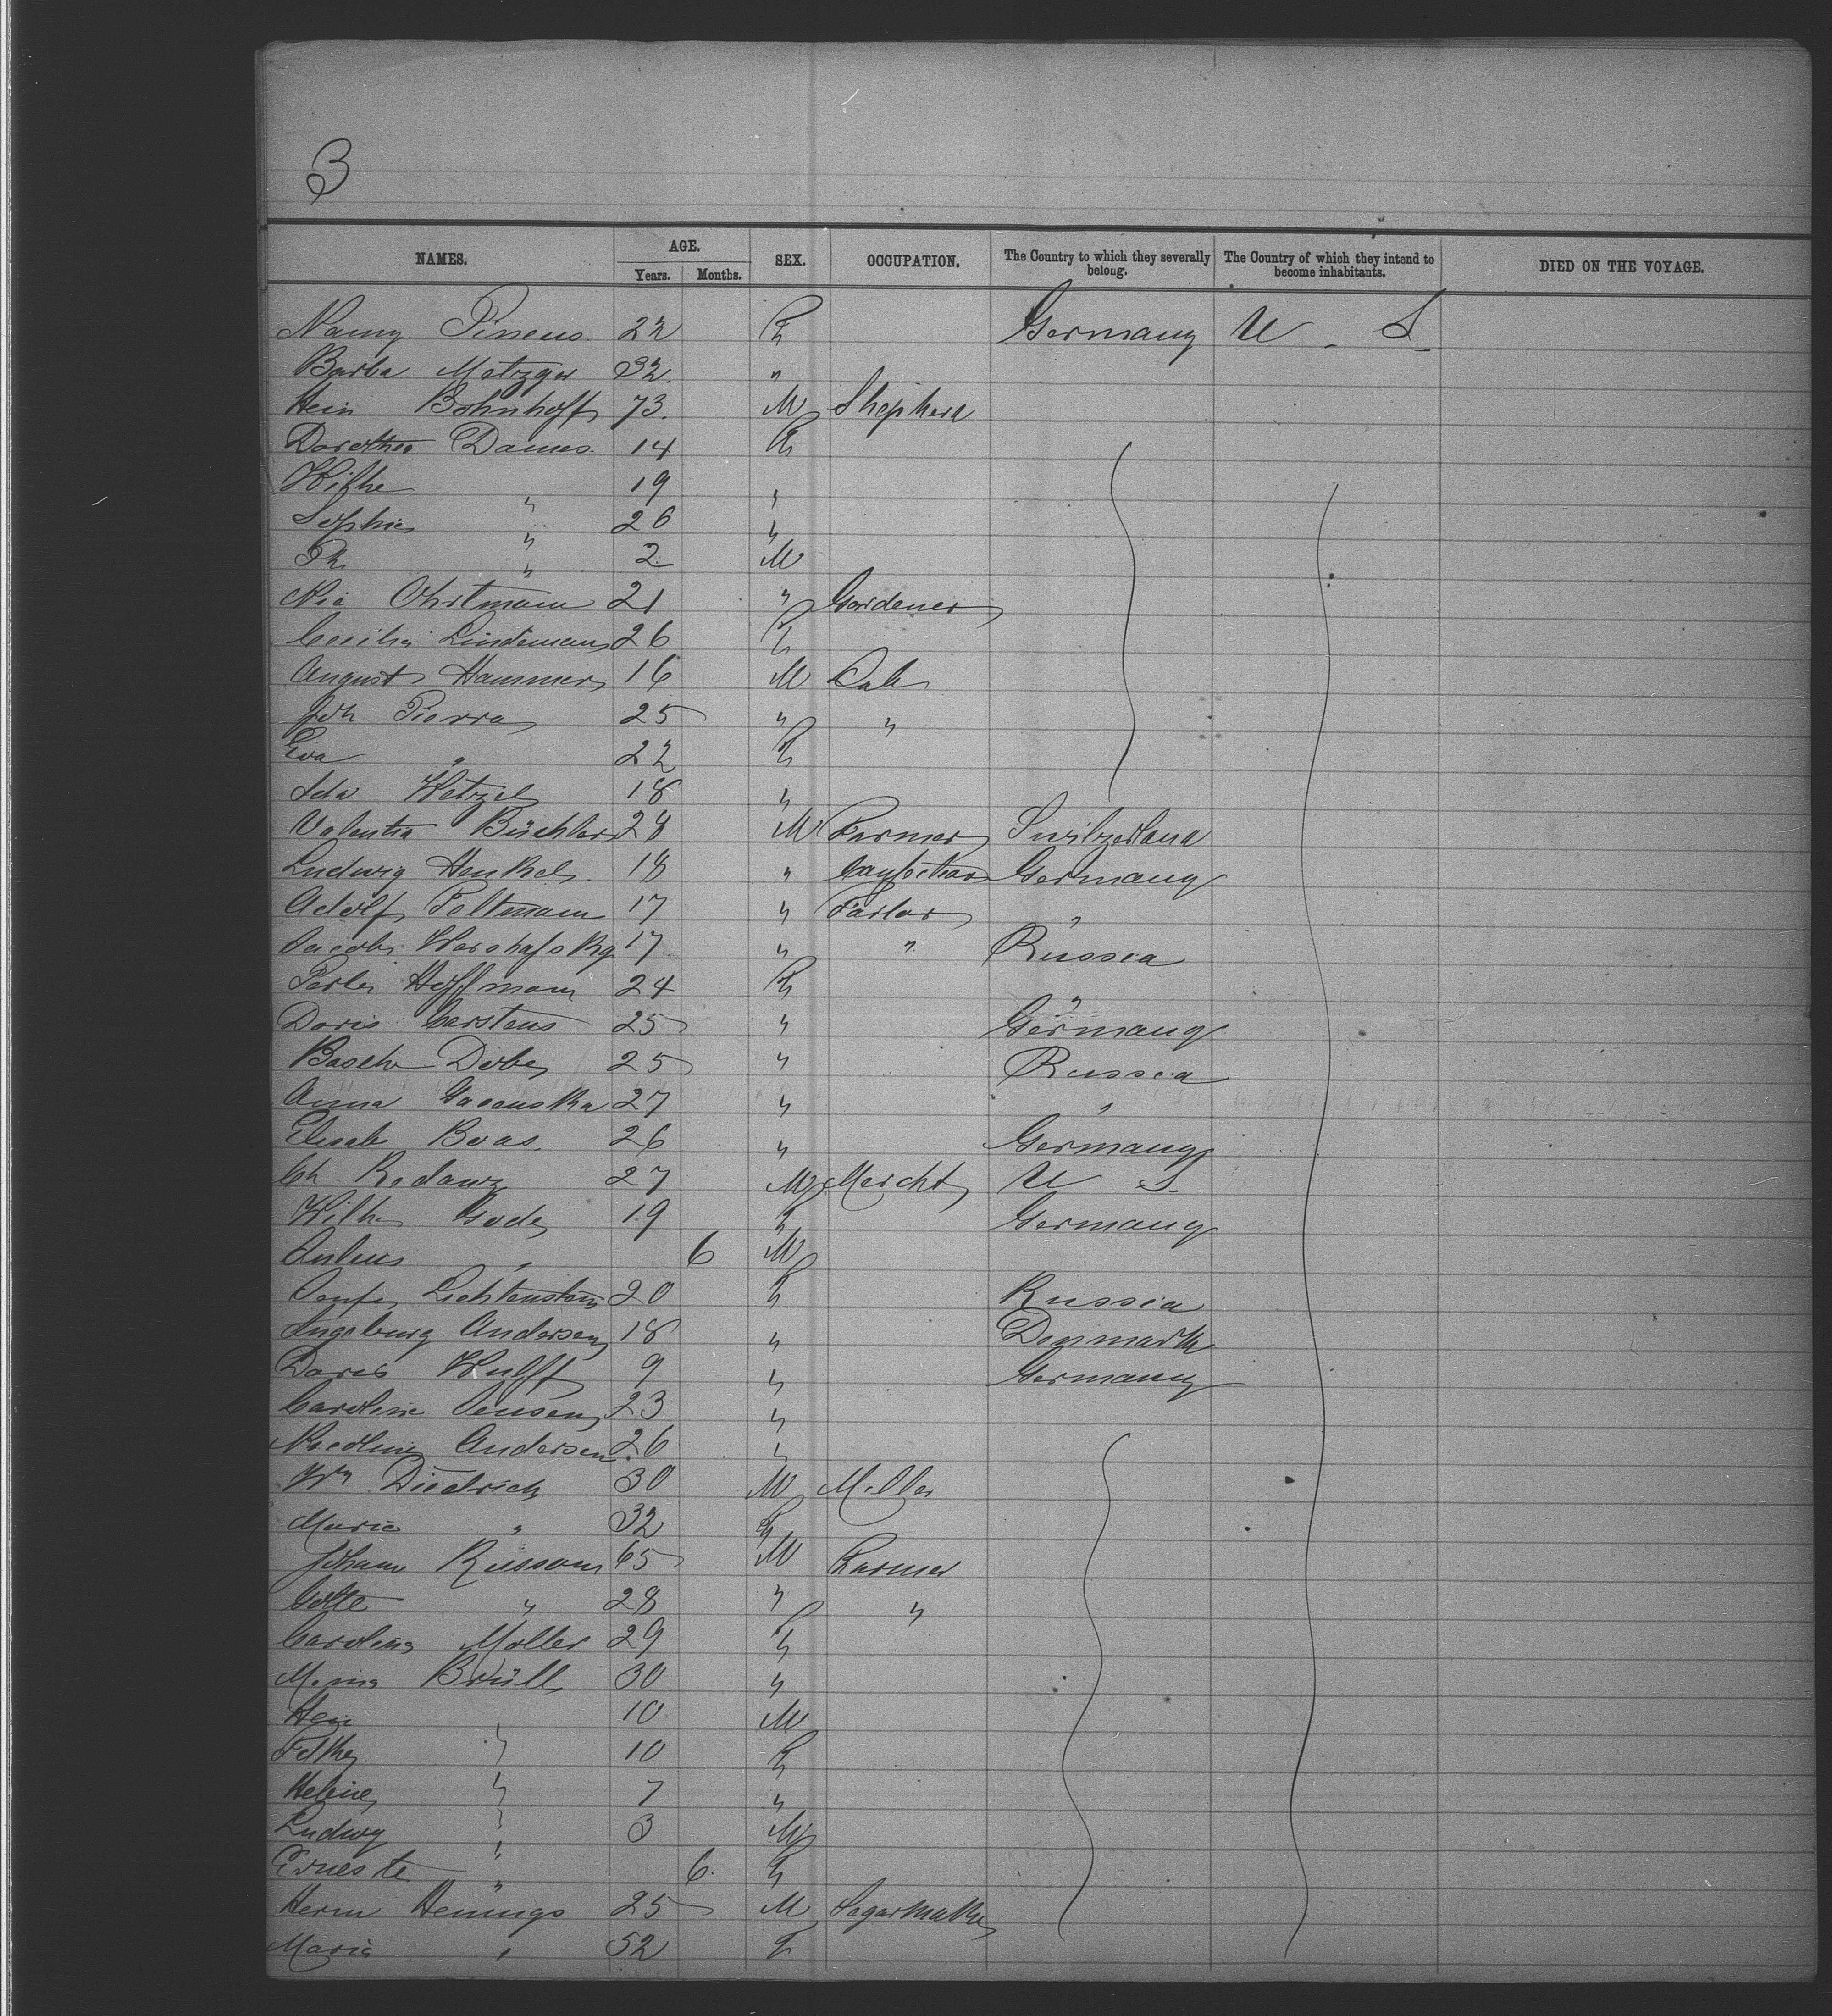 3
NAMES. AGE. Years. Months. SEX. OCCUPATION. The Country to which they severally belong. The Country of which they intend to become inhabitants. DIED ON THE VOYAGE.
Nanny Pincus 22 F Germany U. S.
Barba Metzger 32 "
Hein Bohnhoff 73 M Shepherd
Dorothea Dames 14 F
Wilhe " 19 "
Sophie " 26 "
" 2 M
Nic Ohrtmann 21 " Gardener
Cecilia Lindemann 26 F
August Hammer 16 M Lab
Joh Pierra 25 " "
Eva " 22 F
Ida Wetzel 18 "
Valentin Büchler 28 M Farmer Switzerland
Ludwig Henkel 18 " Confection Germany
Adolf Peltmann 17 " Tailor "
Jacob Warshafsky 17 " " Russia
Hoffmann 24 F "
Doris Carstens 25 " Germany
Basche Dobe 25 " Russia
Anna 27 " "
Elisab Boas 26 " Germany
Ch Rodawz 27 M Mercht U S
Wilh Gode 19 F Germany
Julius " 6 M
Lichtenstein 20 F Russia
Ingeburg Andersen 18 " Denmark
Doris Wulff 9 " Germany
Caroline Jensen 23 "
Andersen 26 "
Wm Diedrich 30 M Miller
Marie " 32 F
Johann 65 M Farmer
" 28 " "
Carolina Moller 29 F
Brüll 30 "
Hein " 10 M
" 10 F
Helene " 7 "
Ludwg " 3 M
Erneste " 6 F
Herm Hennings 25 M Segarmaker
Maria " 52 F